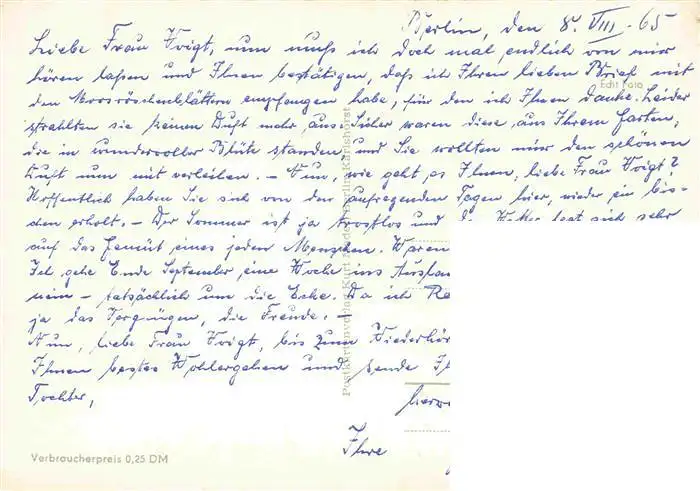 Berlin, den 8. VIII. 65
Liebe Frau Voigt, nun muß ich doch mal endlich von mir
hören laßen und Ihnen bestätigen, daß ich Ihren lieben Brief mit
den Moosröschenblättern empfangen habe, für den ich Ihnen danke. Leider
strahlten sie keinen Duft mehr aus. Sicher waren diese aus Ihrem Garten,
die in wundervoller Blüte standen, und Sie wollten mir den schönen
Duft nun mit verleihen. – Nun, wie geht es Ihnen, liebe Frau Voigt?
Hoffentlich haben Sie sich von den aufregenden Tagen hier, wieder ein bis-
chen erholt. – Der Sommer ist ja trostlos und das Wetter legt sich sehr
auf das Gemüt eines jeden Menschen. Waren
Ich gehe Ende September eine Woche ins
nein – tatsächlich um die Ecke. Da ich
ja das Vergnügen, die Freude. –
Nun, liebe Frau Voigt, bis zum
Ihnen bestes Wohlergehen und sende
Tochter,
Ihre
Echt Foto
Verbraucherpreis 0,25 DM